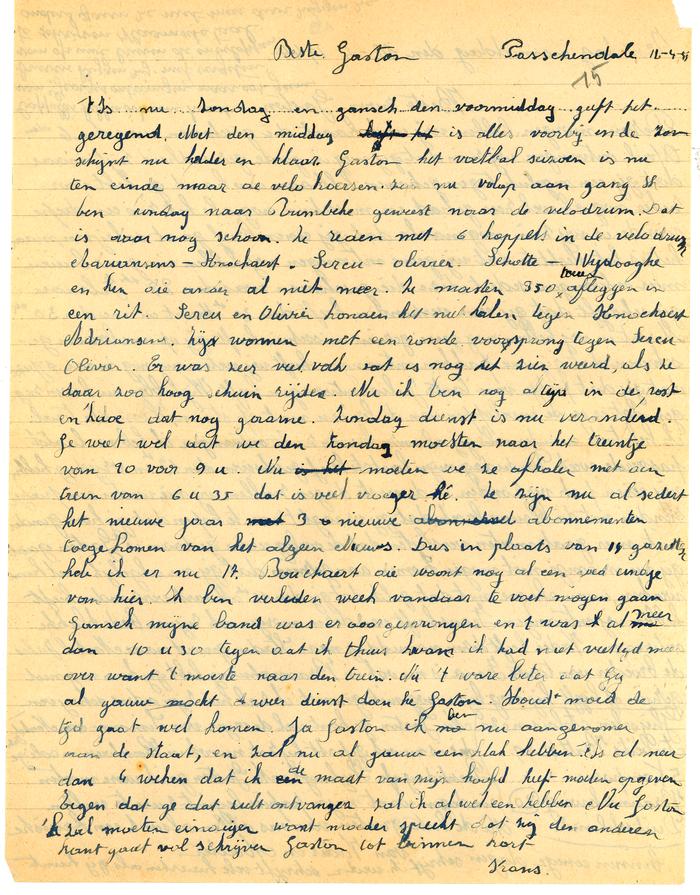 Beste Gaston Passchendale 11-4-
15
't Is nu Zondag en gansch den voormiddag heeft het
geregend. Met den middag heeft het is alles voorby en de zon
schijnt nu helder en klaar Gaston het voetbal seizoen is nu
ten einde maar de velo koersen zijn nu volop aan gang Ik
ben zondag naar Rumbeke geweest naar de velodrum. Dat
is daar nog schoon. Ze reden met 6 koppels in de velodrum
Adriansens - Knockaert - Sercu - Olivier. Schotte - Nydooghe
en hen die ander al niet meer. Ze moesten 350 toeren afleggen in
een rit. Sercu en Olivier konden het niet halen tegen Knockaert
Adriansens. zijn wonnen met een ronde voorsprong tegen Sercu
Olivier. Er was zeer veel volk dat is nog het zien weerd, als ze
daar zoo hoog schuin rijden. Nu ik ben nog altijd in de post
en 'k doe dat nog gaarne. Zondag dienst is nu veranderd.
Je weet wel dat we den Zondag moesten naar het treintje
van 10 voor 9 u. Nu is het moeten we ze afhalen met den
trein van 6 u 35 dat is veel vroeger hé. Ze zijn nu al sedert
het nieuwe jaar met 3 nieuwe abonnementen
toegekomen van het algeen Nieuws. Dus in plaats van 14 gazetten
heb ik er nu 17. Bouckaert die woont nog al een goed eindje
van hier. Ik ben verleden week vandaar te voet mogen gaan
Gansch mijne band was er doorgesprongen en 't was al meer
dan 10 u 30 tegen dat ik thuis kwam ik had niet veel tyd meer
over want 't moeste naar den trein. Nu 't ware beter dat Gij
al gauw mocht weer dienst doen hé Gaston. Houd moed de
tyd gaat wel komen. Ja Gaston ik ben nu aangenomen
van de staat, en zal nu al gauw een klak hebben. 't Is al meer
dan 4 weken dat ik de maat van mijn hoofd heb moeten opgeven
Tegen dat ge dat zult ontvangen zal ik al wel een hebben Nu Gaston
'k zal moeten eindigen want moeder spreekt dat zij den anderen
kant gaat vol schrijven Gaston tot binnen kort
Frans.